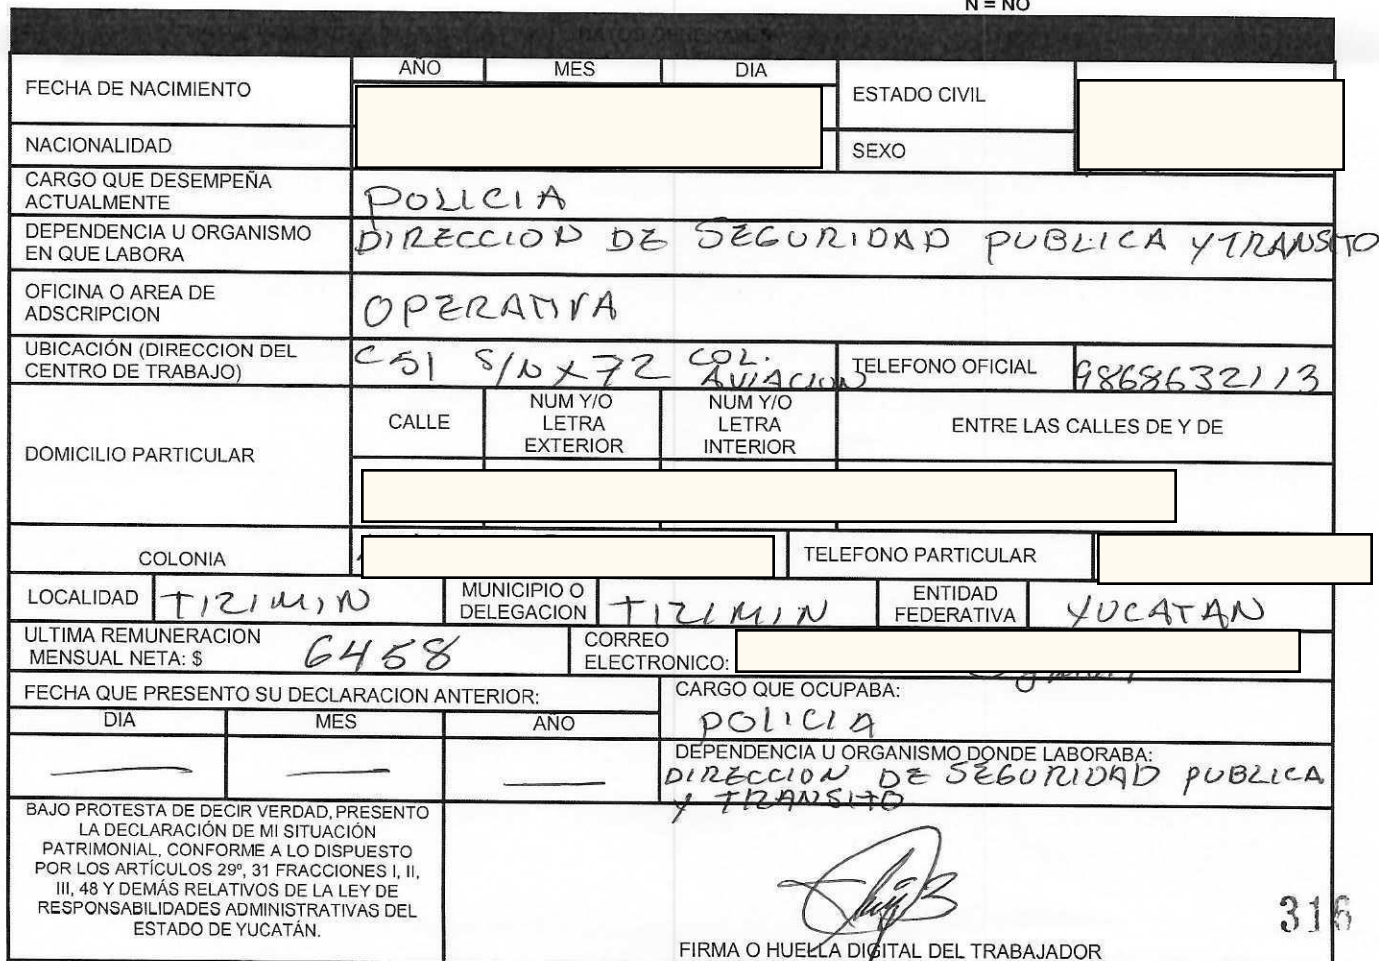 N = NO
DATOS GENERALES
FECHA DE NACIMIENTO
AÑO MES DIA
ESTADO CIVIL
NACIONALIDAD
SEXO
CARGO QUE DESEMPEÑA
ACTUALMENTE
POLICIA
DEPENDENCIA U ORGANISMO
EN QUE LABORA
DIRECCION DE SEGURIDAD PUBLICA Y TRANSITO
OFICINA O AREA DE
ADSCRIPCION
OPERATIVA
UBICACIÓN (DIRECCION DEL
CENTRO DE TRABAJO)
C 51 S/N X 72 COL.
AVIACION
TELEFONO OFICIAL
9868632113
DOMICILIO PARTICULAR
CALLE
NUM Y/O
LETRA
EXTERIOR
NUM Y/O
LETRA
INTERIOR
ENTRE LAS CALLES DE Y DE
COLONIA
TELEFONO PARTICULAR
LOCALIDAD TIZIMIN
MUNICIPIO O
DELEGACION
TIZIMIN
ENTIDAD
FEDERATIVA
YUCATAN
ULTIMA REMUNERACION
MENSUAL NETA: $ 6458
CORREO
ELECTRONICO:
FECHA QUE PRESENTO SU DECLARACION ANTERIOR:
DIA MES AÑO
CARGO QUE OCUPABA:
POLICIA
DEPENDENCIA U ORGANISMO DONDE LABORABA:
DIRECCION DE SEGURIDAD PUBLICA
Y TRANSITO
BAJO PROTESTA DE DECIR VERDAD, PRESENTO
LA DECLARACIÓN DE MI SITUACIÓN
PATRIMONIAL, CONFORME A LO DISPUESTO
POR LOS ARTÍCULOS 29º, 31 FRACCIONES I, II,
III, 48 Y DEMÁS RELATIVOS DE LA LEY DE
RESPONSABILIDADES ADMINISTRATIVAS DEL
ESTADO DE YUCATÁN.
FIRMA O HUELLA DIGITAL DEL TRABAJADOR
316